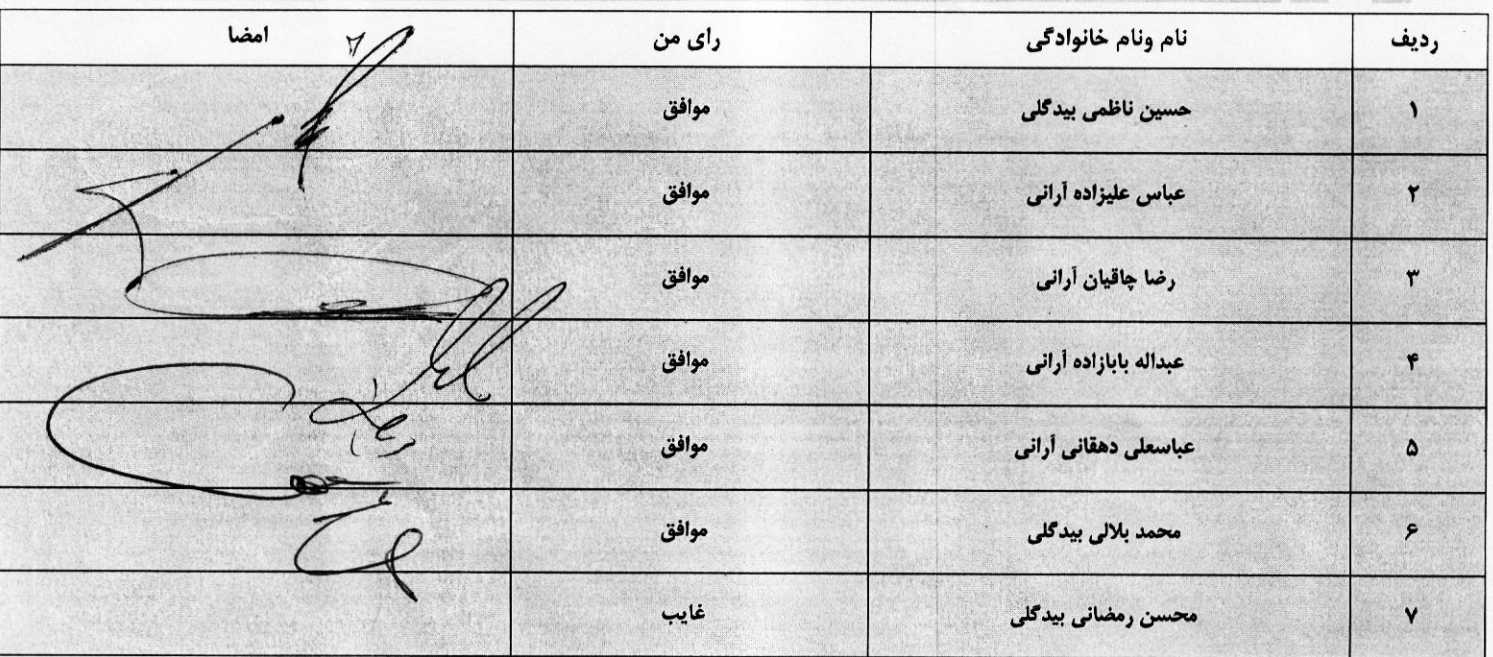 ردیف نام ونام خانوادگی رای من امضا
۱ حسین ناظمی بیدگلی موافق
۲ عباس علیزاده آرانی موافق
۳ رضا چاقیان آرانی موافق
۴ عبداله بابازاده آرانی موافق
۵ عباسعلی دهقانی آرانی موافق
۶ محمد بلالی بیدگلی موافق
۷ محسن رمضانی بیدگلی غایب